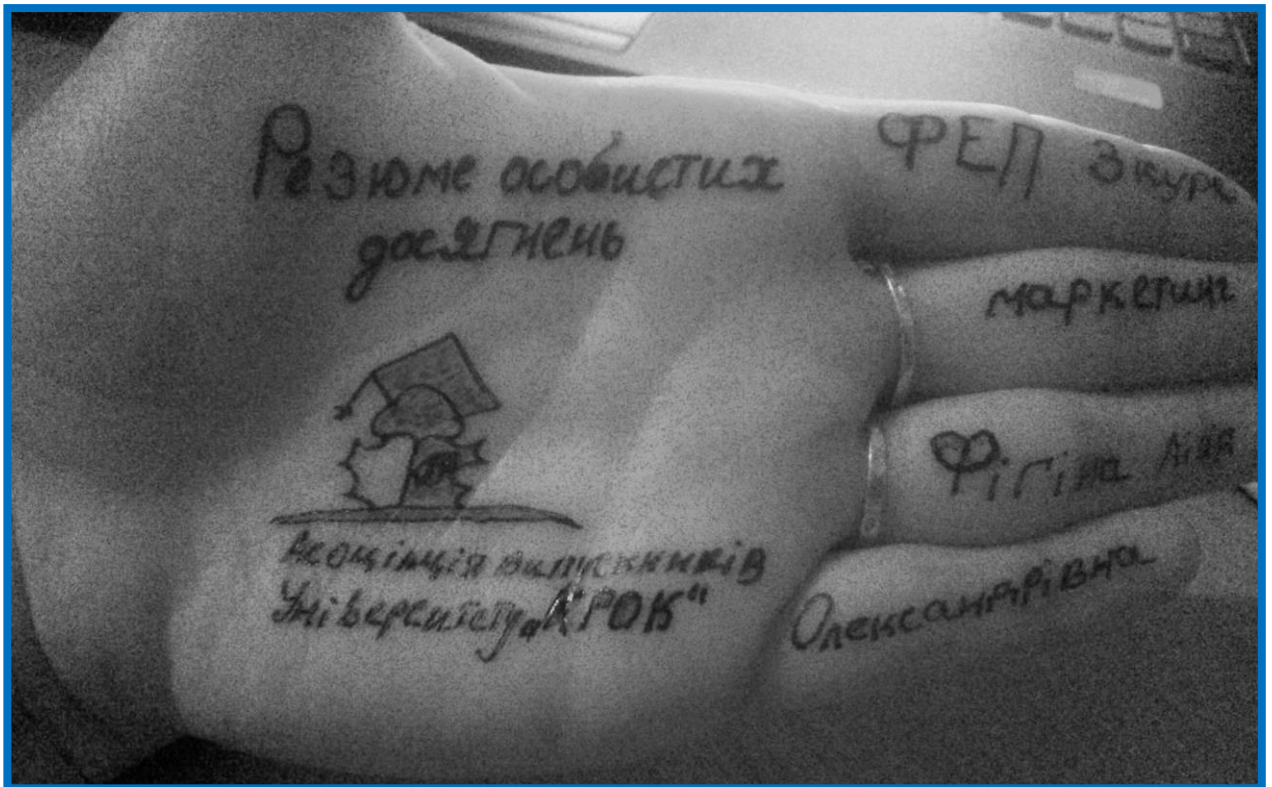 Резюме особистих
досягнень
Асоціація випускників
Університету „КРОК“
ФЕП 3 курс
маркетинг
Фігіна Лілія
Олександрівна